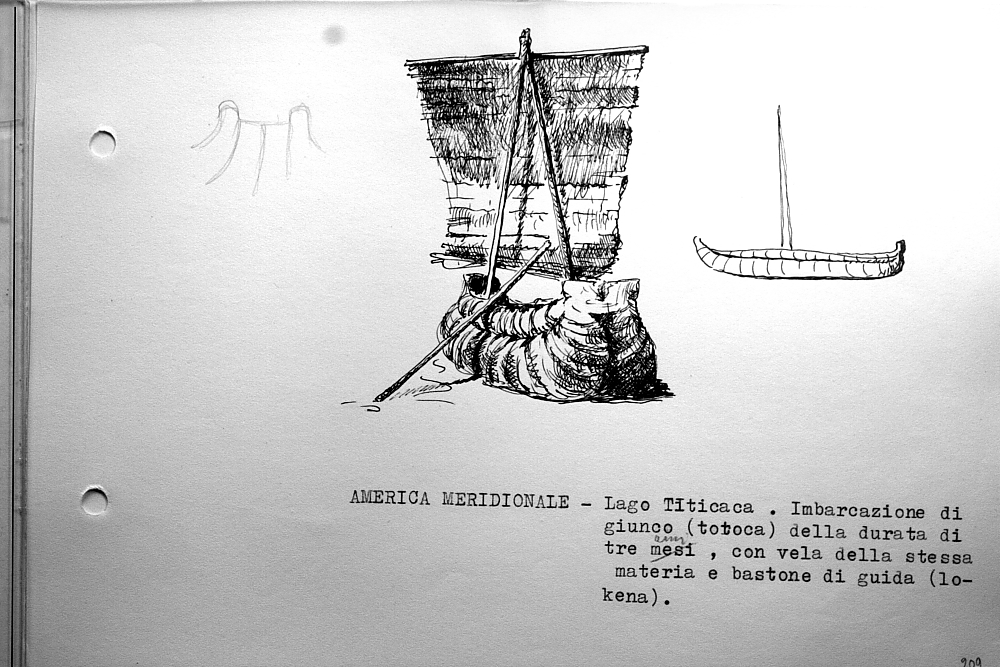 AMERICA MERIDIONALE - Lago Titicaca . Imbarcazione di
giunco (totoca) della durata di
anni
tre mesi , con vela della stessa
materia e bastone di guida (lo-
kena).
209